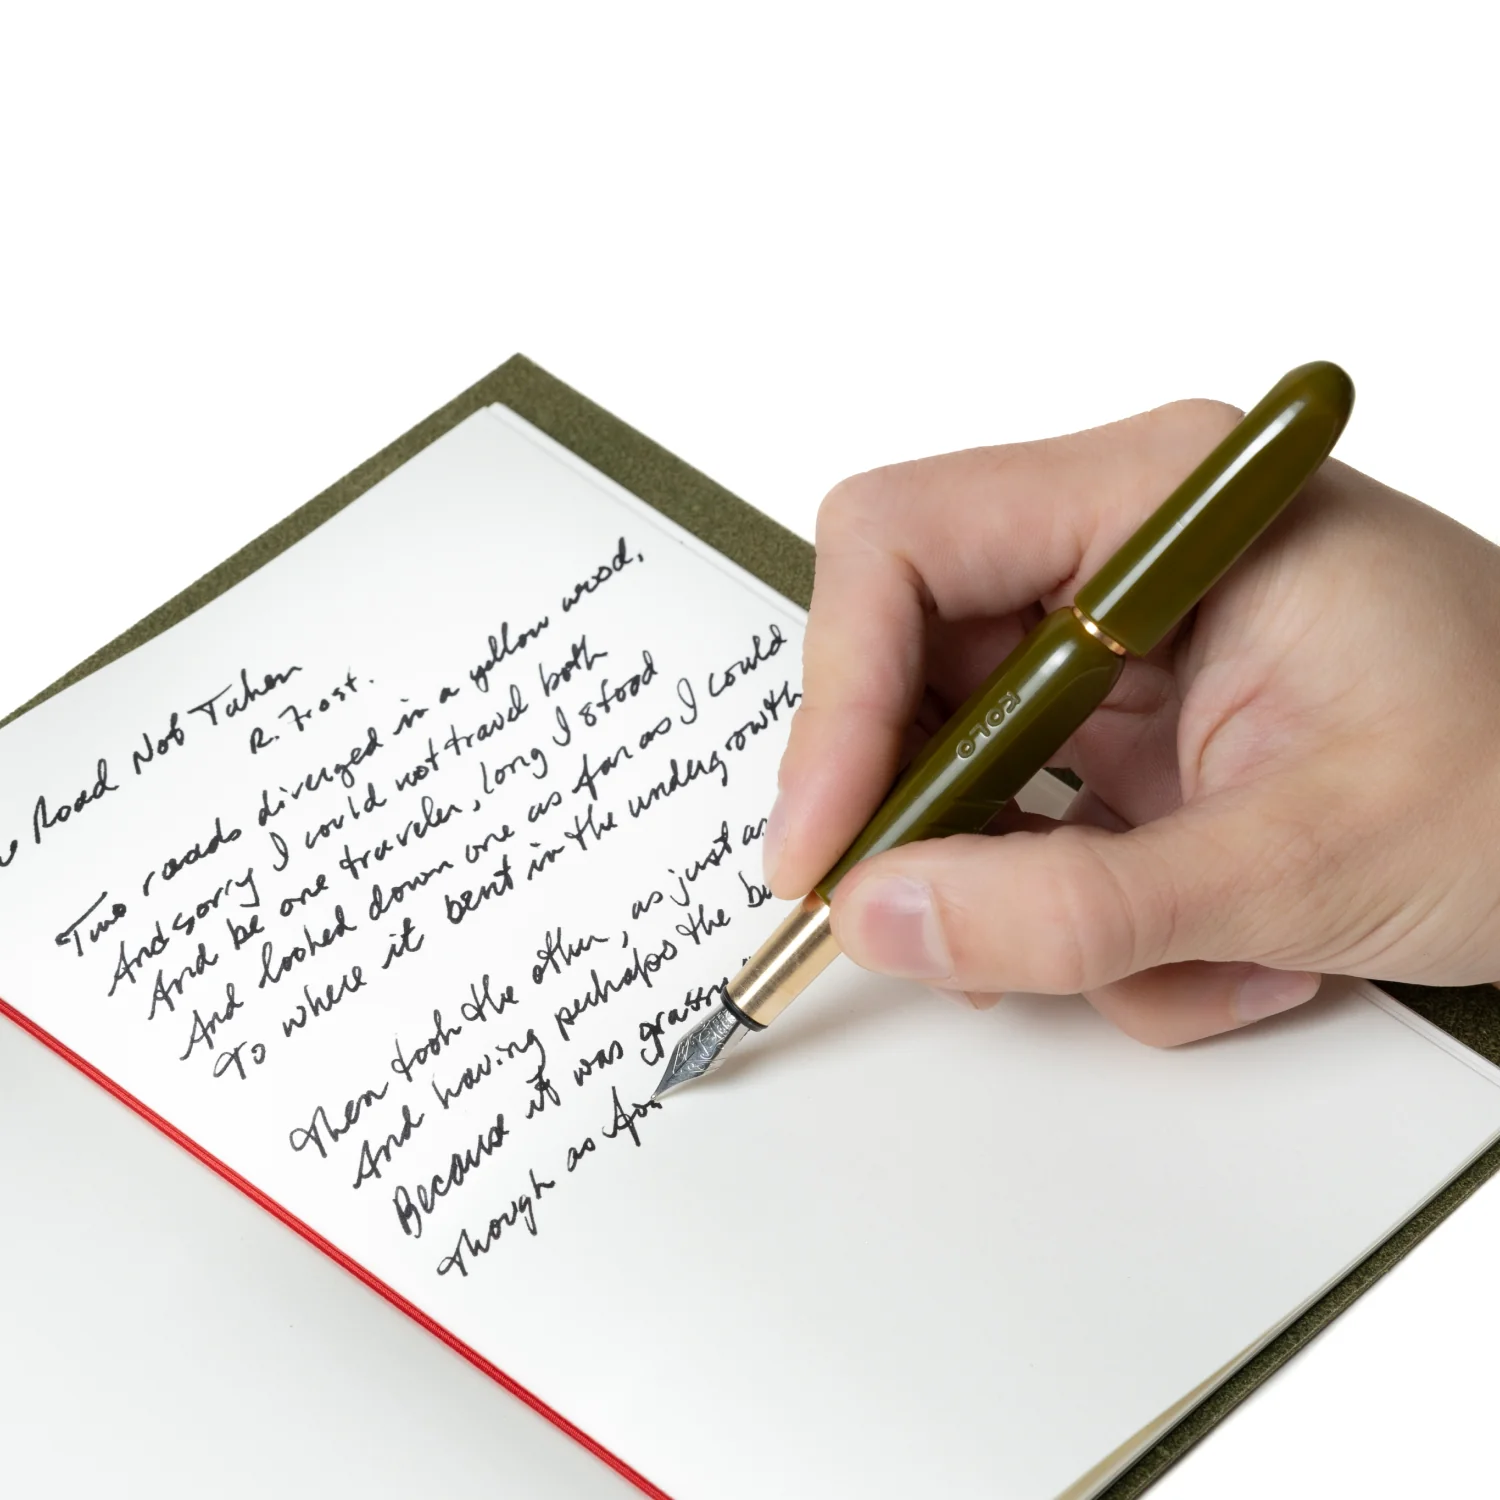 Road Not Taken
R. Frost.
Two roads diverged in a yellow wood,
And sorry I could not travel both
And be one traveler, long I stood
And looked down one as far as I could
To where it bent in the undergrowth
Then took the other, as just as
And having perhaps the
Because it was grassy
Though as for
KOLO